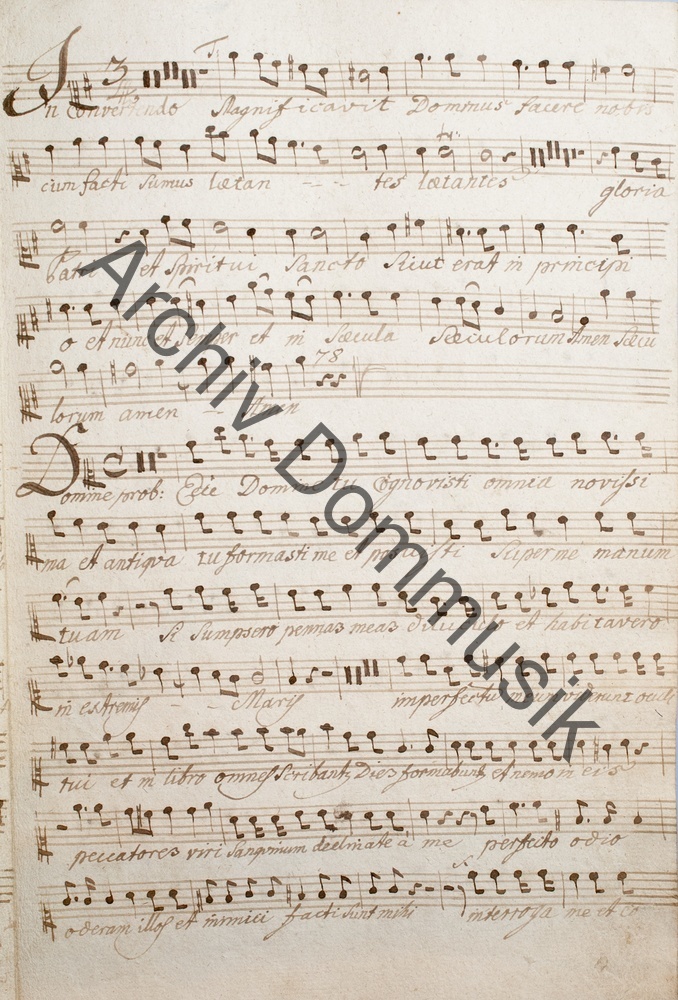 In Convertendo Magnificavit Dominus facere nobis
cum facti sumus lætan - - - tes lætantes gloria
Patri et Spiritui Sancto Sicut erat in principi
o et nunc et semper et in Sæcula Sæculorum Amen Sæcu
78
lorum amen - - Amen
Domine prob: Ecce Domine tu Cognovisti omnia novissi
ma et antiqva tu formasti me et posuisti Super me manum
tuam Si Sumpsero pennas meas diluculo et habitavero
in extremis - - Maris imperfectu meum viderunt oculi
tui et in libro omnes Scribantr Dies formabuntr et nemo in eis
peccatores viri Sangvinum declinate à me perfecto odio
oderam illos et inimici facti Sunt mihi interroga me et co
Archiv Dommusik